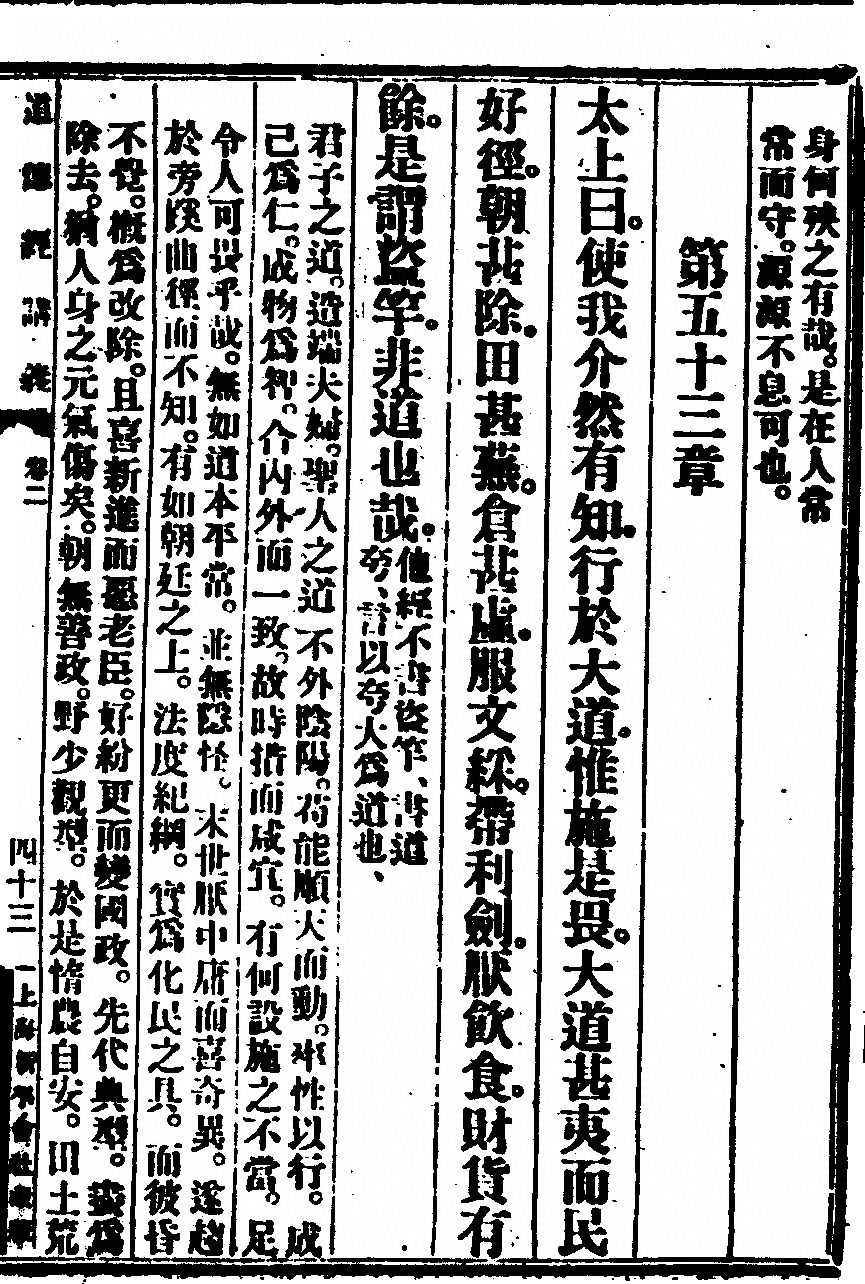 身何殃之有哉。是在人常
常而守。源源不息可也。
第五十三章
太上曰。使我介然有知。行於大道。惟施是畏。大道甚夷而民
好徑。朝甚除。田甚蕪。倉甚虛。服文綵。帶利劍。厭飲食。財貨有
餘。是謂盜竽。非道也哉。
他經不書盜竽、書道
夸、言以夸大爲道也、
君子之道。造端夫婦。聖人之道不外陰陽。苟能順天而動。率性以行。成
己爲仁。成物爲智。合內外而一致。故時措而咸宜。有何設施之不當。足
令人可畏乎哉。無如道本平常。並無隱怪。末世厭中庸而喜奇異。遂趨
於旁蹊曲徑而不知。有如朝廷之上。法度紀綱。實爲化民之具。而彼昏
不覺。概爲改除。且喜新進而惡老臣。好紛更而變國政。先代典型。盡爲
除去。猶人身之元氣傷矣。朝無善政。野少觀型。於是惰農自安。田土荒
道德經講義
卷二
四十三
上海新學會社發